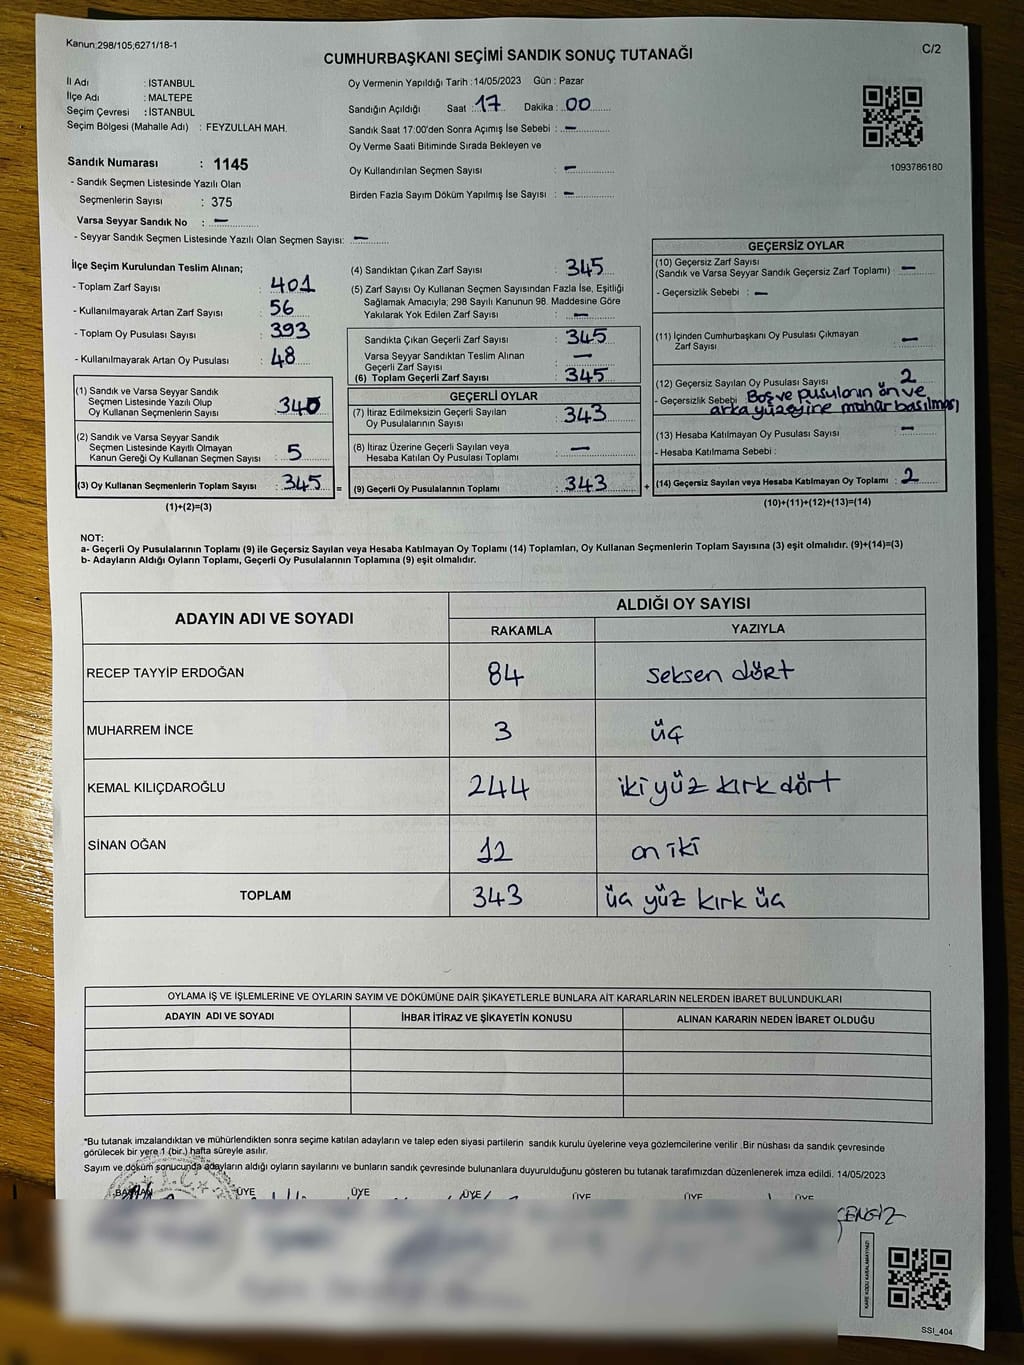 Kanun:298/105;6271/18-1
C/2
CUMHURBAŞKANI SEÇİMİ SANDIK SONUÇ TUTANAĞI
İl Adı : İSTANBUL
İlçe Adı : MALTEPE
Seçim Çevresi : İSTANBUL
Seçim Bölgesi (Mahalle Adı) : FEYZULLAH MAH.
Sandık Numarası : 1145
- Sandık Seçmen Listesinde Yazılı Olan
Seçmenlerin Sayısı : 375
Varsa Seyyar Sandık No : —
- Seyyar Sandık Seçmen Listesinde Yazılı Olan Seçmen Sayısı: —
Oy Vermenin Yapıldığı Tarih : 14/05/2023 Gün : Pazar
Sandığın Açıldığı Saat : 17 Dakika : 00
Sandık Saat 17:00'den Sonra Açımış İse Sebebi : —
Oy Verme Saati Bitiminde Sırada Bekleyen ve
Oy Kullandırılan Seçmen Sayısı : —
Birden Fazla Sayım Döküm Yapılmış İse Sayısı : —
1093786180
İlçe Seçim Kurulundan Teslim Alınan;
- Toplam Zarf Sayısı : 401
- Kullanılmayarak Artan Zarf Sayısı : 56
- Toplam Oy Pusulası Sayısı : 393
- Kullanılmayarak Artan Oy Pusulası : 48
(1) Sandık ve Varsa Seyyar Sandık
Seçmen Listesinde Yazılı Olup
Oy Kullanan Seçmenlerin Sayısı : 340
(2) Sandık ve Varsa Seyyar Sandık
Seçmen Listesinde Kayıtlı Olmayan
Kanun Gereği Oy Kullanan Seçmen Sayısı : 5
(3) Oy Kullanan Seçmenlerin Toplam Sayısı : 345 =
(1)+(2)=(3)
(4) Sandıktan Çıkan Zarf Sayısı : 345
(5) Zarf Sayısı Oy Kullanan Seçmen Sayısından Fazla İse, Eşitliği
Sağlamak Amacıyla; 298 Sayılı Kanunun 98. Maddesine Göre
Yakılarak Yok Edilen Zarf Sayısı : —
Sandıkta Çıkan Geçerli Zarf Sayısı : 345
Varsa Seyyar Sandıktan Teslim Alınan
Geçerli Zarf Sayısı : —
(6) Toplam Geçerli Zarf Sayısı : 345
GEÇERLİ OYLAR
(7) İtiraz Edilmeksizin Geçerli Sayılan
Oy Pusulalarının Sayısı : 343
(8) İtiraz Üzerine Geçerli Sayılan veya
Hesaba Katılan Oy Pusulası Toplamı : —
(9) Geçerli Oy Pusulalarının Toplamı : 343 +
GEÇERSİZ OYLAR
(10) Geçersiz Zarf Sayısı
(Sandık ve Varsa Seyyar Sandık Geçersiz Zarf Toplamı) : —
- Geçersizlik Sebebi : —
(11) İçinden Cumhurbaşkanı Oy Pusulası Çıkmayan
Zarf Sayısı : —
(12) Geçersiz Sayılan Oy Pusulası Sayısı : 2
- Geçersizlik Sebebi Boş ve pusulanın ön ve
arka yüzeyine mühür basılması
(13) Hesaba Katılmayan Oy Pusulası Sayısı : —
- Hesaba Katılmama Sebebi :
(14) Geçersiz Sayılan veya Hesaba Katılmayan Oy Toplamı : 2
(10)+(11)+(12)+(13)=(14)
NOT:
a- Geçerli Oy Pusulalarının Toplamı (9) ile Geçersiz Sayılan veya Hesaba Katılmayan Oy Toplamı (14) Toplamları, Oy Kullanan Seçmenlerin Toplam Sayısına (3) eşit olmalıdır. (9)+(14)=(3)
b- Adayların Aldığı Oyların Toplamı, Geçerli Oy Pusulalarının Toplamına (9) eşit olmalıdır.
ADAYIN ADI VE SOYADI
ALDIĞI OY SAYISI
RAKAMLA YAZIYLA
RECEP TAYYİP ERDOĞAN 84 seksen dört
MUHARREM İNCE 3 üç
KEMAL KILIÇDAROĞLU 244 iki yüz kırk dört
SİNAN OĞAN 12 on iki
TOPLAM 343 üç yüz kırk üç
OYLAMA İŞ VE İŞLEMLERİNE VE OYLARIN SAYIM VE DÖKÜMÜNE DAİR ŞİKAYETLERLE BUNLARA AİT KARARLARIN NELERDEN İBARET BULUNDUKLARI
ADAYIN ADI VE SOYADI İHBAR İTİRAZ VE ŞİKAYETİN KONUSU ALINAN KARARIN NEDEN İBARET OLDUĞU
*Bu tutanak imzalandıktan ve mühürlendikten sonra seçime katılan adayların ve talep eden siyasi partilerin sandık kurulu üyelerine veya gözlemcilerine verilir .Bir nüshası da sandık çevresinde
görülecek bir yere 1 (bir.) hafta süreyle asılır.
Sayım ve döküm sonucunda adayların aldığı oyların sayılarını ve bunların sandık çevresinde bulunanlara duyurulduğunu gösteren bu tutanak tarafımızdan düzenlenerek imza edildi. 14/05/2023
BAŞKAN ÜYE ÜYE ÜYE ÜYE ÜYE ÜYE
T.C.
KARE KODU KARALAMAYINIZ!
SSI_404